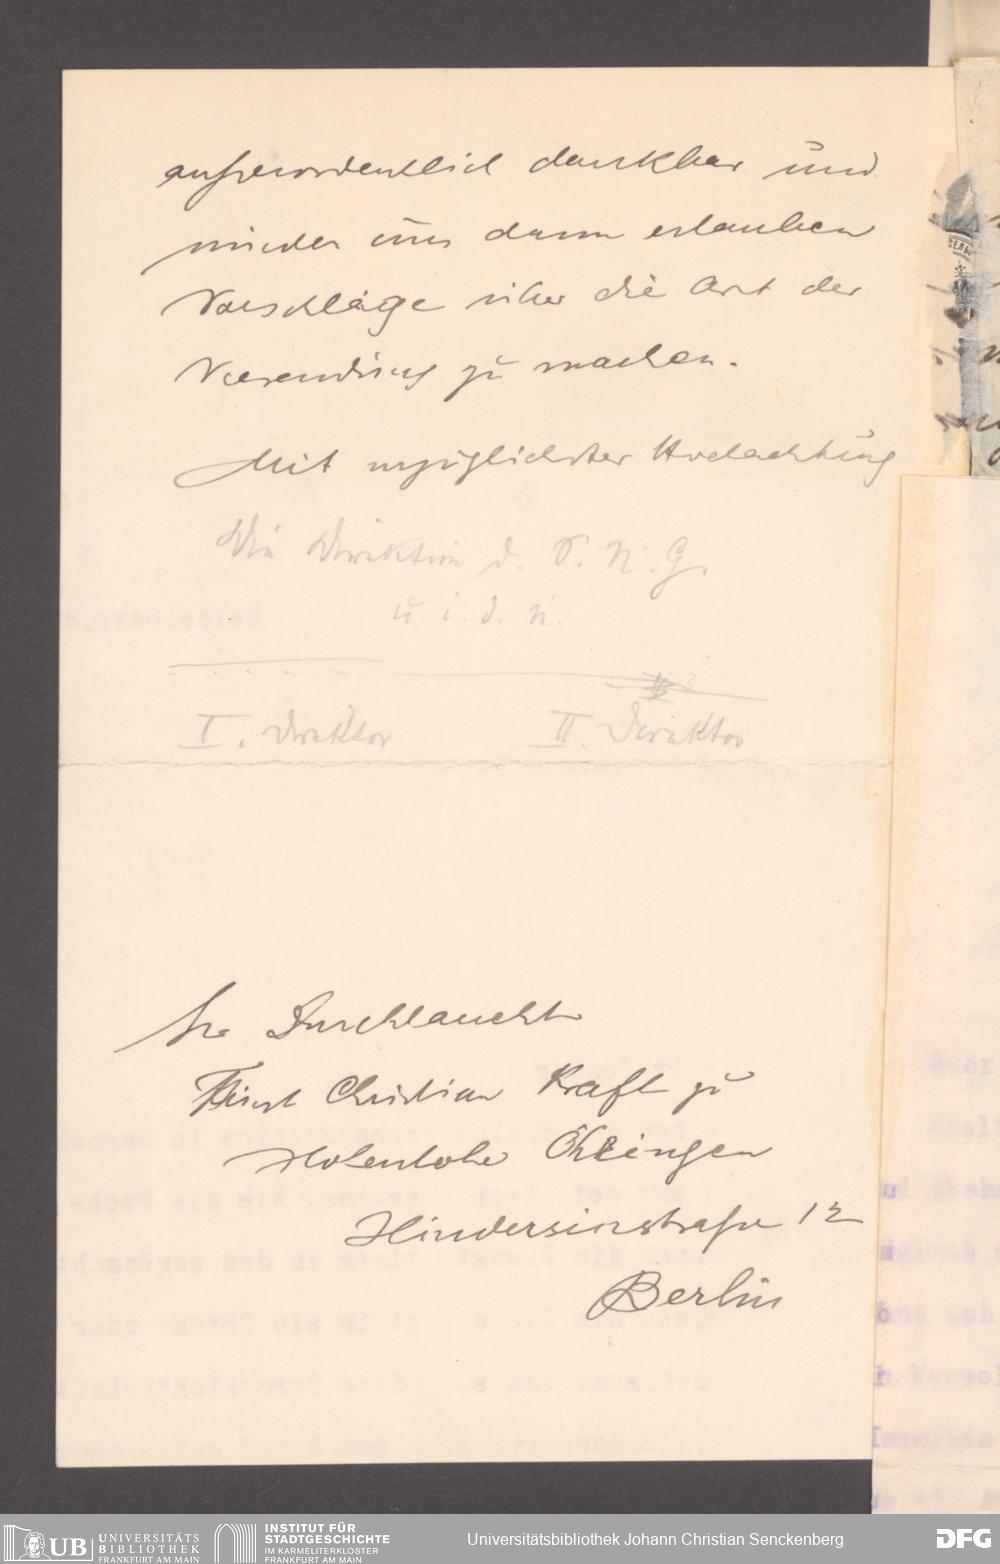 außerordentlich dankbar und
würden uns dann erlauben
Vorschläge über die Art der
Versendung zu machen.
Mit vorzüglichster Hochachtung
Die Direktion d. S. N. G.
u. i. d. N.
I. Direktor II Direktor
Sr Durchlaucht
Fürst Christian Kraft zu
Hohenlohe Öhringen
Hindersinstraße 12
Berlin
UB UNIVERSITÄTS
BIBLIOTHEK
FRANKFURT AM MAIN
INSTITUT FÜR
STADTGESCHICHTE
IM KARMELITERKLOSTER
FRANKFURT AM MAIN
Universitätsbibliothek Johann Christian Senckenberg
DFG